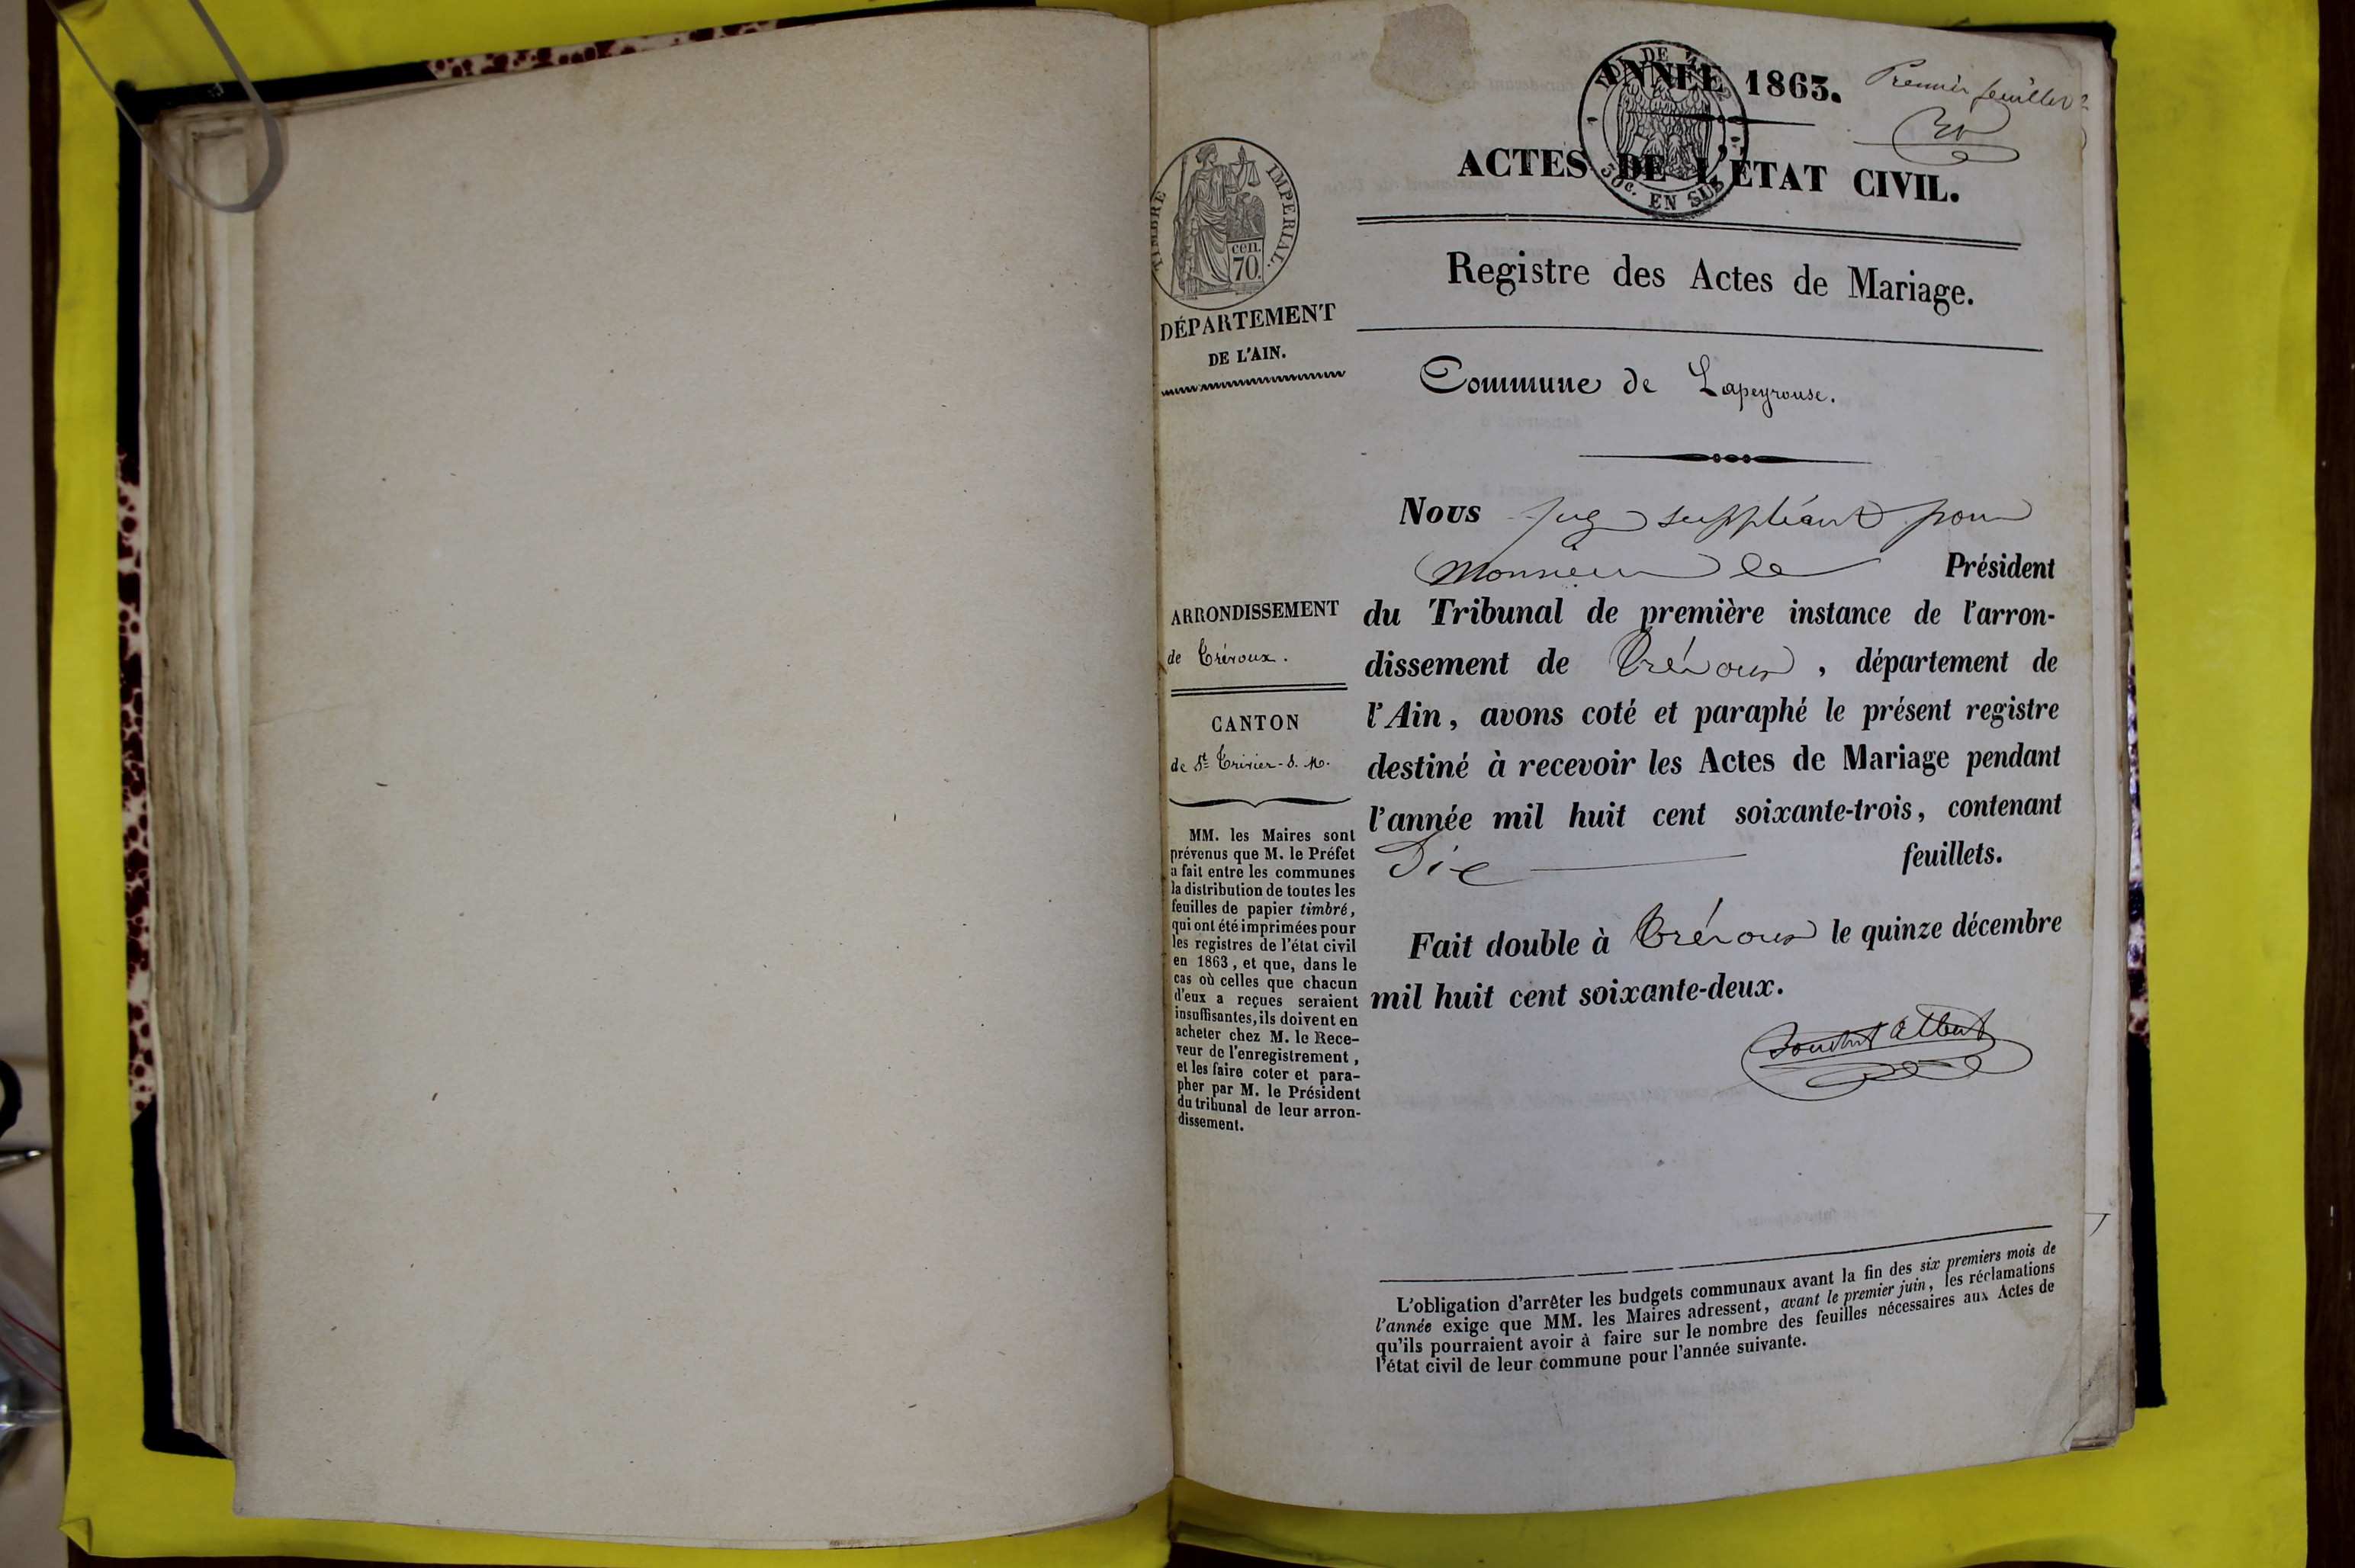 ANNÉE 1863.
Premier feuillet
ACTES DE L'ÉTAT CIVIL.
LOI DE
50c. EN SUS
TIMBRE IMPERIAL.
cen.
70.
DÉPARTEMENT
DE L'AIN.
Registre des Actes de Mariage.
Commune de Lapeyrouse.
Nous Juge suppléant pour
Monsieur le Président
du Tribunal de première instance de l'arron-
dissement de Trévoux, département de
l'Ain, avons coté et paraphé le présent registre
destiné à recevoir les Actes de Mariage pendant
l'année mil huit cent soixante-trois, contenant
feuillets.
Fait double à Trévoux le quinze décembre
mil huit cent soixante-deux.
Albert
ARRONDISSEMENT
de Trévoux.
CANTON
de St Trivier-s. M.
MM. les Maires sont
prévenus que M. le Préfet
a fait entre les communes
la distribution de toutes les
feuilles de papier timbré,
qui ont été imprimées pour
les registres de l'état civil
en 1863, et que, dans le
cas où celles que chacun
d'eux a reçues seraient
insuffisantes, ils doivent en
acheter chez M. le Rece-
veur de l'enregistrement,
et les faire coter et para-
pher par M. le Président
du tribunal de leur arron-
dissement.
L'obligation d'arrêter les budgets communaux avant la fin des six premiers mois de
l'année exige que MM. les Maires adressent, avant le premier juin, les réclamations
qu'ils pourraient avoir à faire sur le nombre des feuilles nécessaires aux Actes de
l'état civil de leur commune pour l'année suivante.